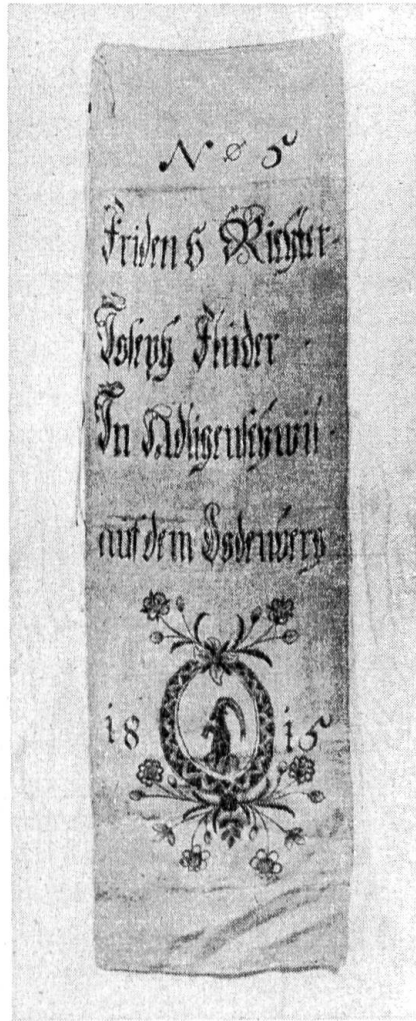 Nº 5
Fridens Richter
Joseph Flüder
In Adligenschwil
auf dem Dodenberg
18 15